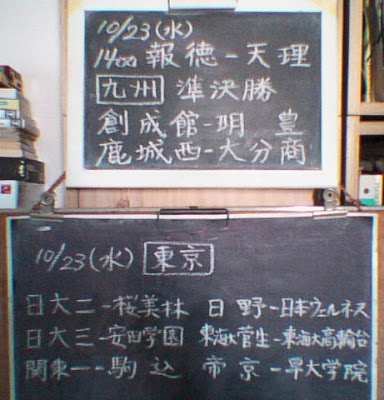 10/23(水)
14:00 報徳-天理
九州 準決勝
創成館-明 豊
鹿城西-大分商
10/23(水) 東京
日大二-桜美林 日 野-日本ウェルネス
日大三-安田学園 東海大菅生-東海大高輪台
関東一-駒 込 帝 京-早大学院